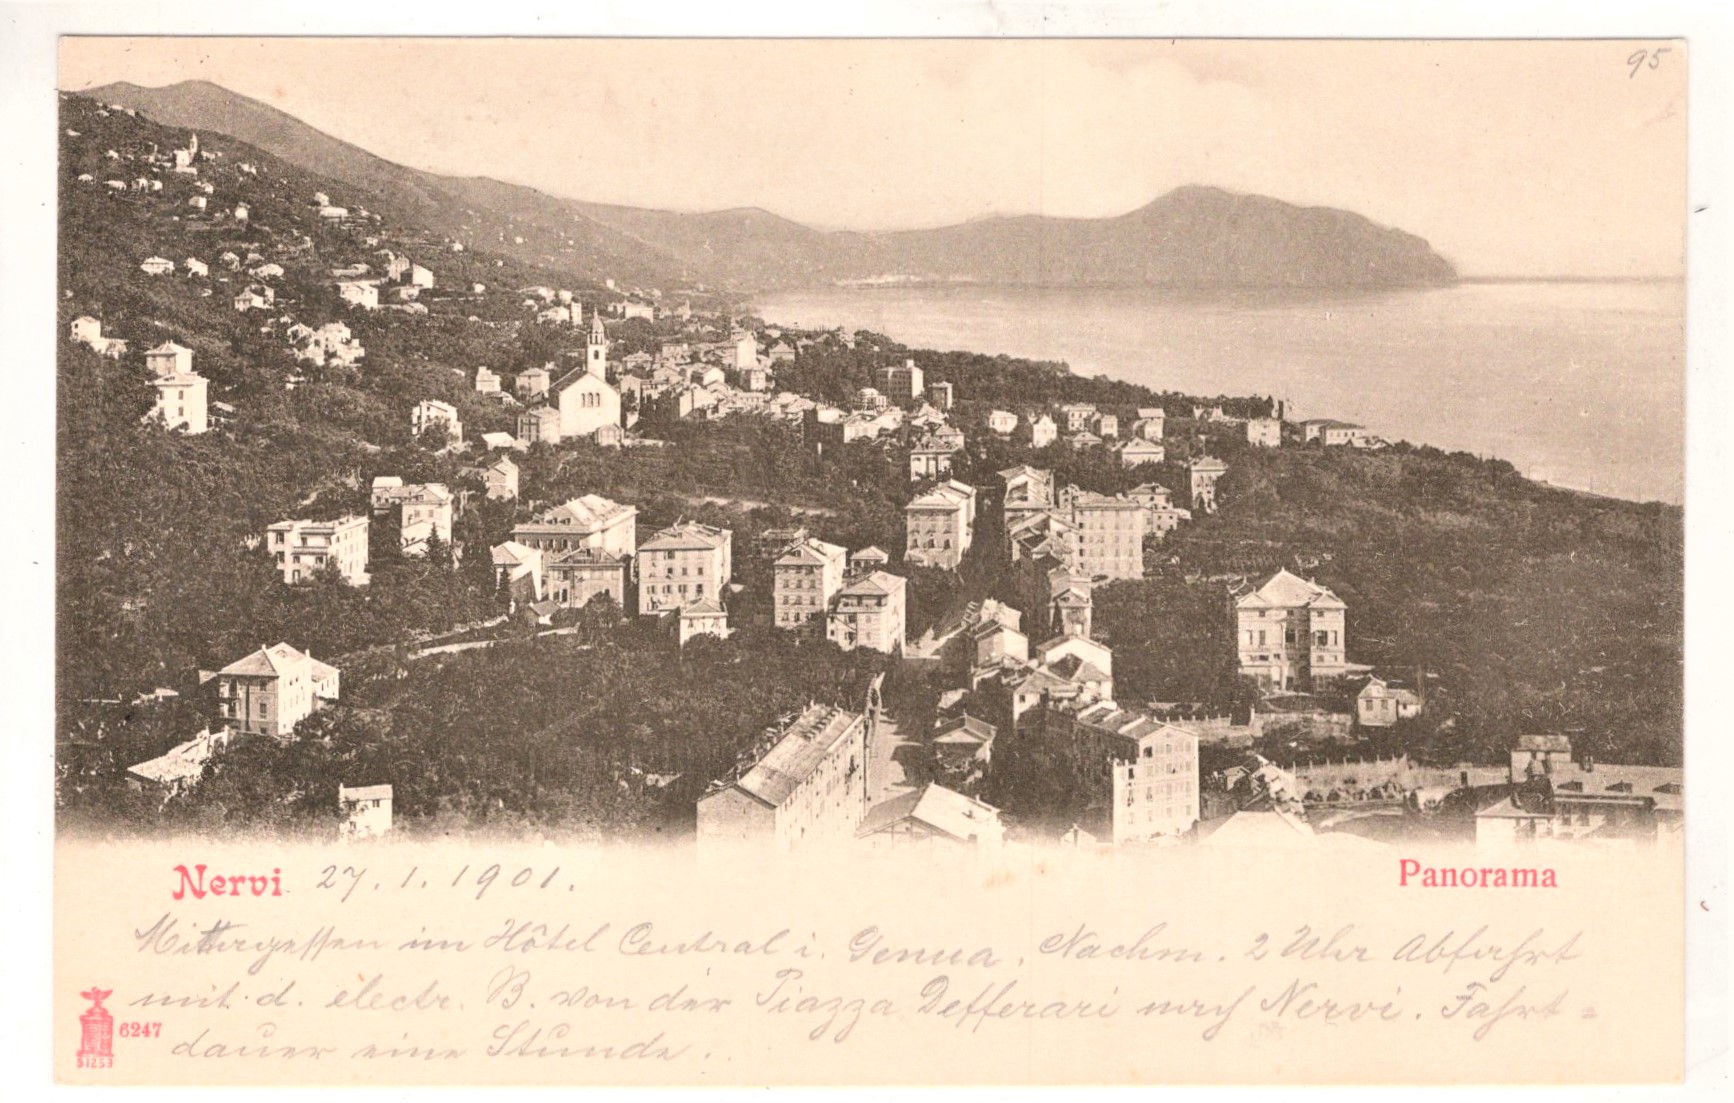 95
Nervi 27. 1. 1901.
Panorama
Mittagessen im Hôtel Central i. Genua. Nachm. 2 Uhr Abfahrt
mit d. electr. B. von der Piazza Defferari nach Nervi. Fahrt=
6247
dauer eine Stunde.
51253